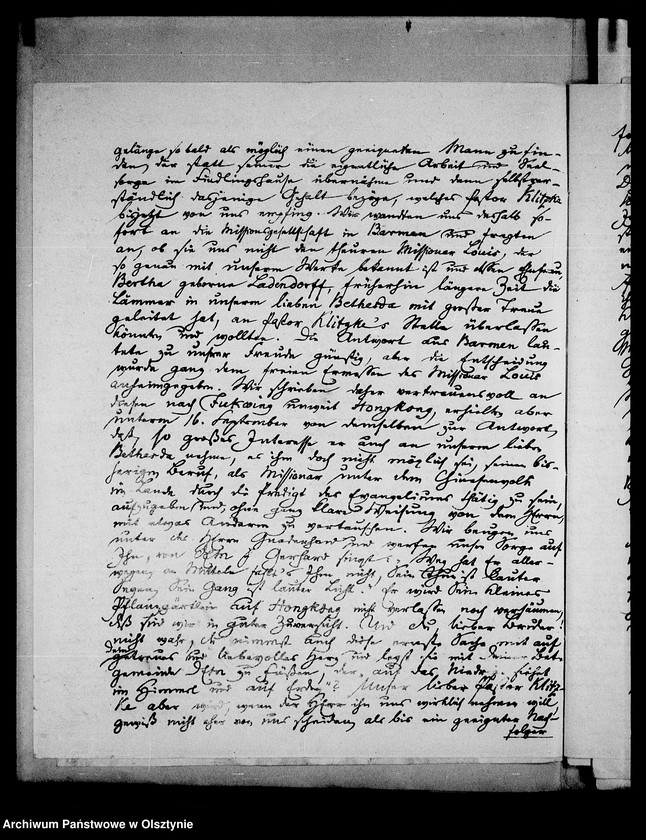 gelänge so bald als möglich einen geeigneten Mann zu fin-
den, der statt seiner die eigentliche Arbeit und Seel-
sorge im Findlingshause übernähme und dann selbstver-
ständlich dasjenige Gehalt bezöge, welches Pastor Klitzke
bisjetzt von uns empfing. Wir wandten uns deshalb so-
fort an die Missionsgesellschaft in Barmen und fragten
an, ob sie uns nicht den theuren Missionar Louis, der
so genau mit unserm Werke bekannt ist und dessen Ehefrau,
Bertha geborne Ladendorff, früherhin längere Zeit die
Lämmer in unserm lieben Bethesda mit großer Treue
geleitet hat, an Pastor Klitzke's Stelle überlassen
könnten und wollten. Die Antwort aus Barmen lau-
tete zu unsrer Freude günstig, aber die Entscheidung
wurde ganz dem freien Ermessen des Missionar Louis
anheimgegeben. Wir schrieben daher vertrauensvoll an
diesen nach Fukwing unweit Hongkong, erhielten aber
unterm 16. September von demselben zur Antwort,
daß, so großes Interesse er auch an unserm lieben
Bethesda nehme, es ihm doch nicht möglich sei, seinen bis-
herigen Beruf, als Missionar unter dem Chinesenvolk
im Lande durch die Predigt des Evangeliums thätig zu sein,
aufzugeben und ohne ganz klare Weisung von dem Herrn,
mit etwas Anderem zu vertauschen. Wir beugen uns
unter des Herrn Gnadenhand und werfen unsre Sorge auf
Ihn, von Dem P. Gerhard singt: "Weg hat Er aller-
wegen, an Mitteln fehlt's Ihm nicht, Sein Thun ist lauter
Segen, Sein Gang ist lauter Licht." Er wird Sein kleines
Pflanzgärtlein auf Hongkong nicht verlassen noch versäumen,
deß sind wir in guter Zuversicht. Und Du, lieber Bruder!
nicht wahr, Du nimmst auch diese ernste Sache mit auf
Dein
getreues und liebevolles Herz und legst sie mit Deiner Bet-
gemeinde Dem zu Füßen, der auf das Niedrige siehet
im Himmel und auf Erden"? Unser lieber Pastor Klitz-
ke aber wird, wenn der Herr ihn uns wirklich nehmen will,
gewiß nicht eher von uns scheiden, als bis ein geeigneter Nach-
folger
Archiwum Państwowe w Olsztynie